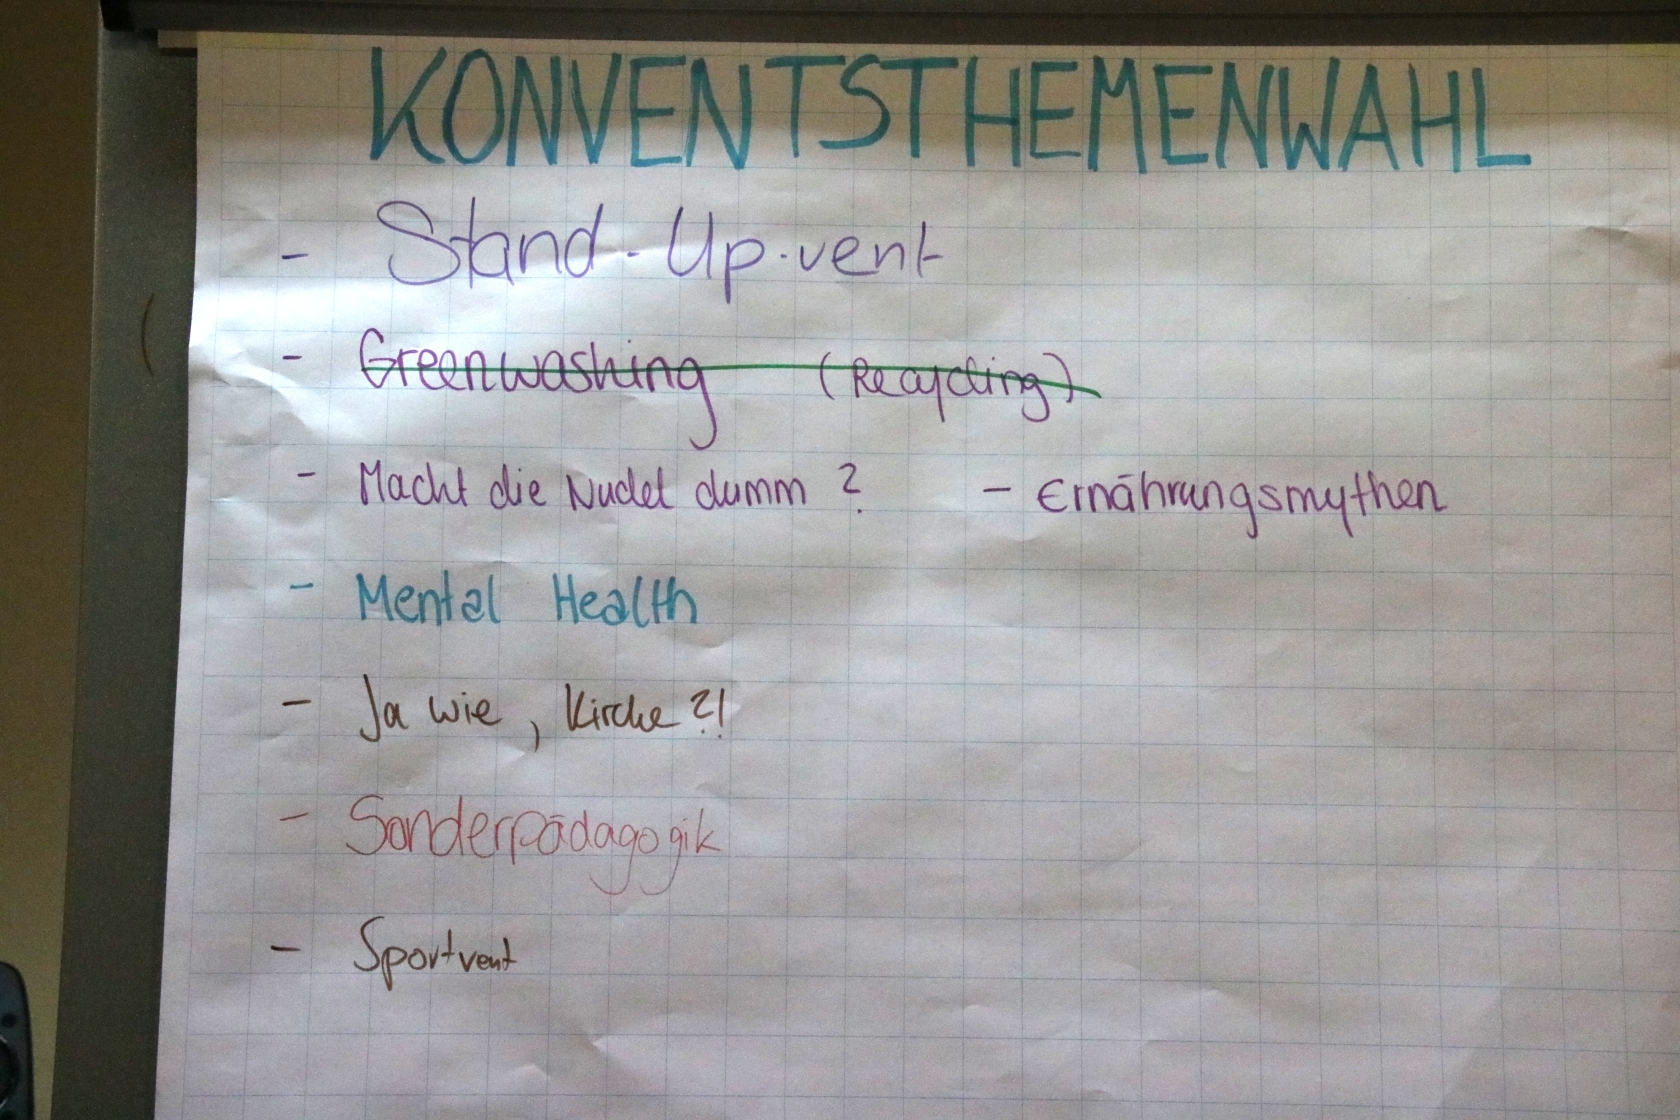 KONVENTSTHEMENWAHL
- Stand-Up-vent
- Greenwashing (Recycling)
- Macht die Nudel dumm ? - Ernährungsmythen
- Mental Health
- Ja wie, Kirche ?!
- Sonderpädagogik
- Sportvent